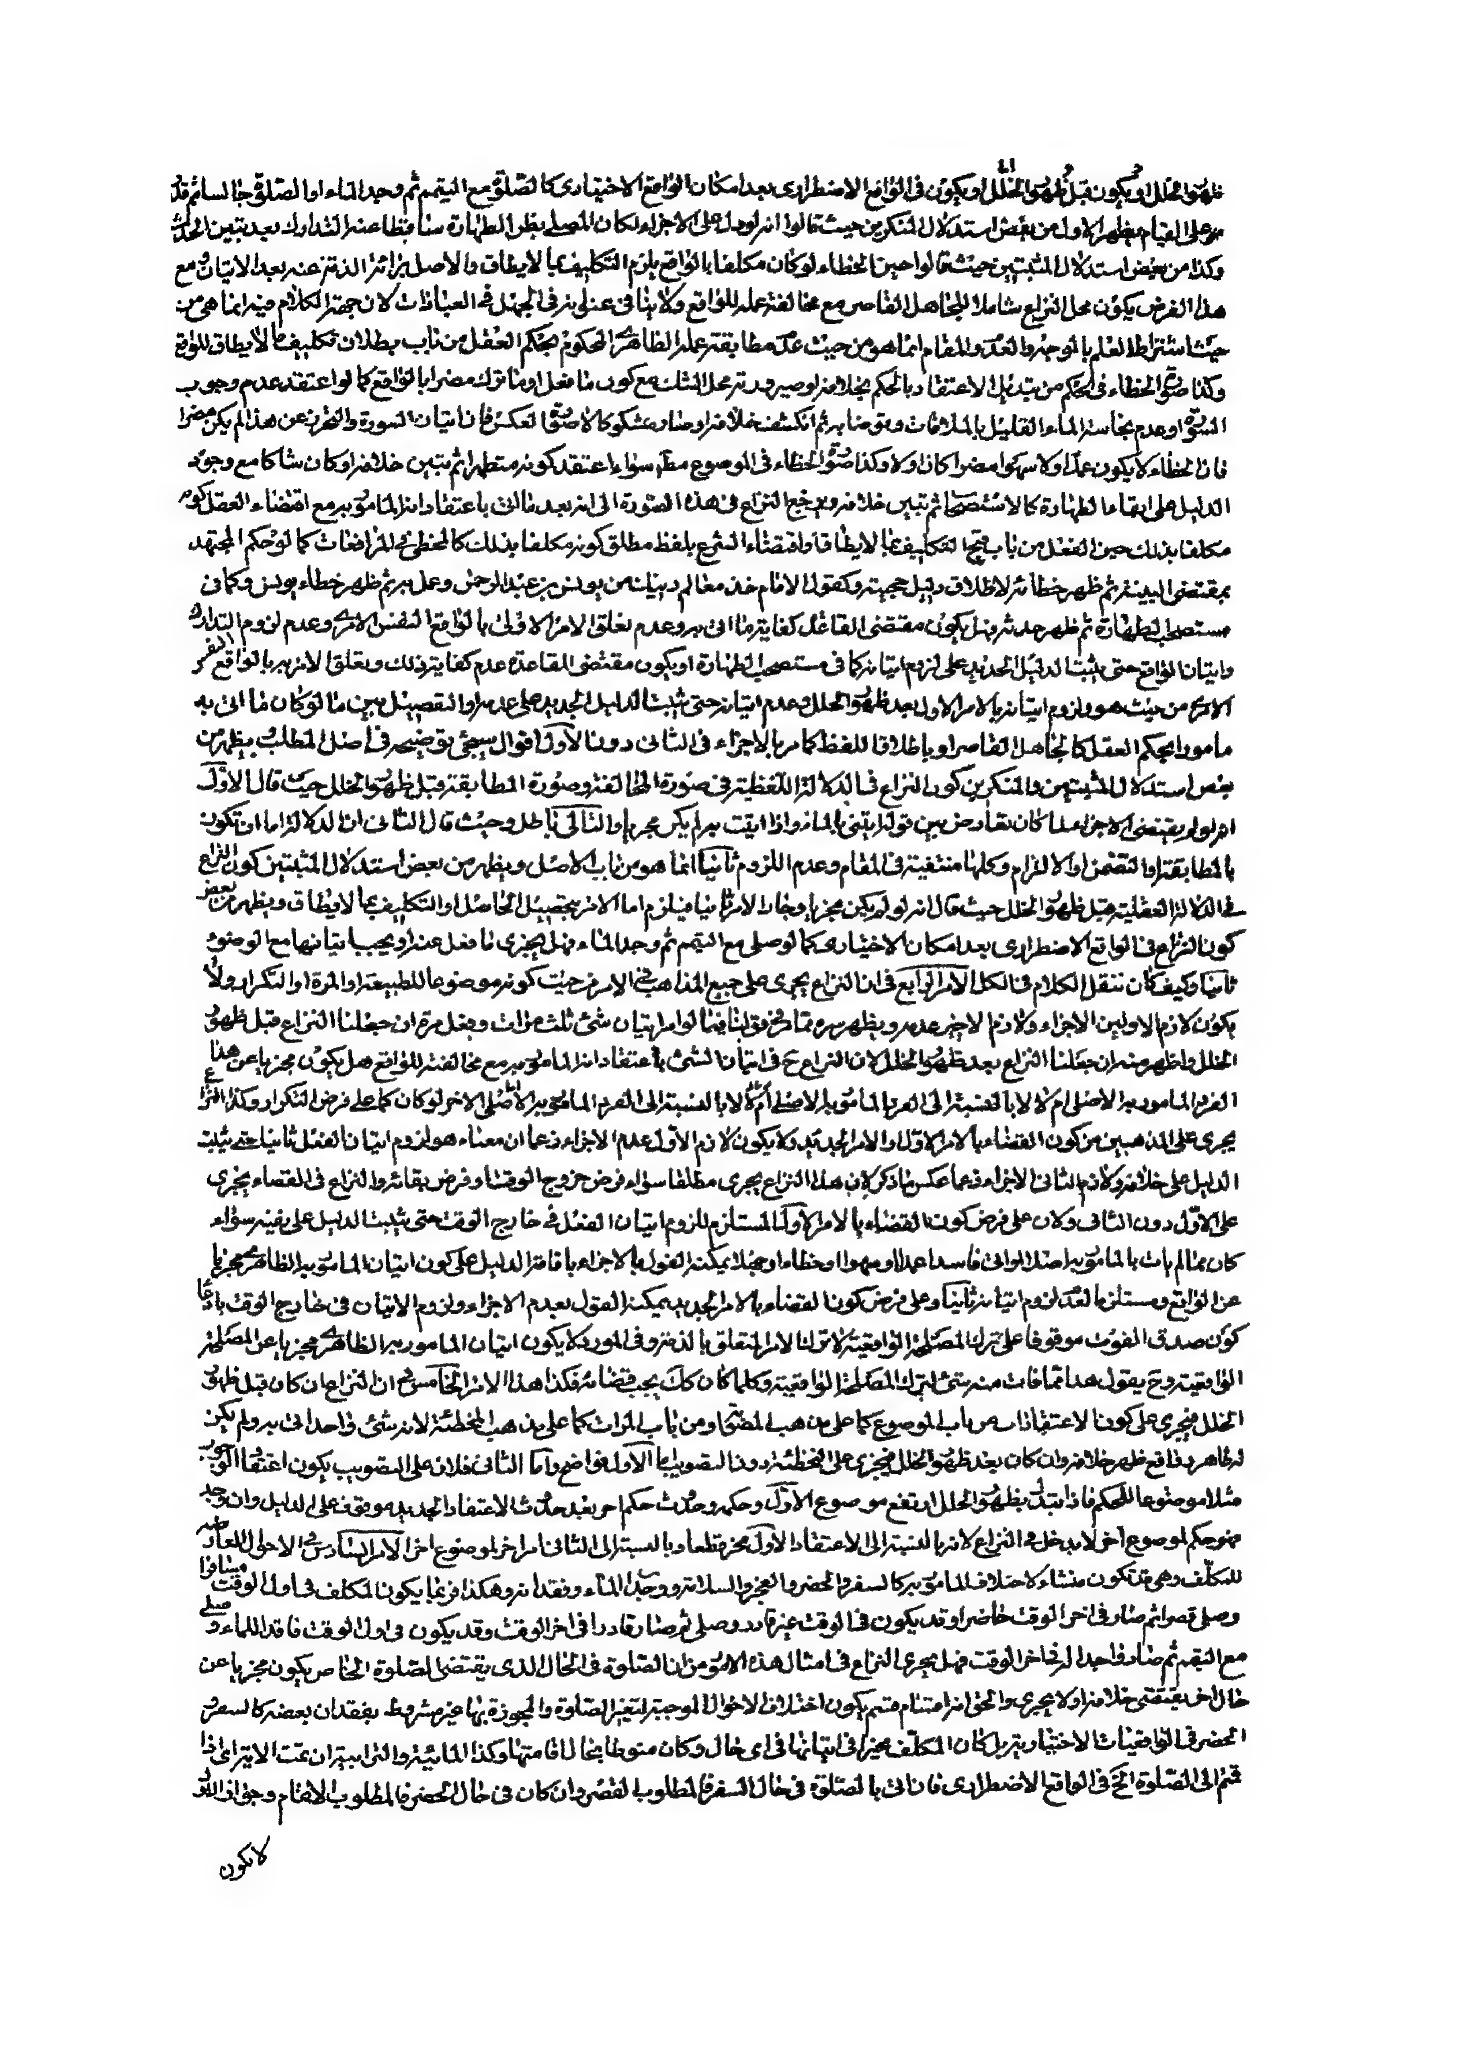 ظهور الخلل او يكون قبل ظهور الخلل او يكون فى الواقع الاضطرارى بعد امكان الواقع الاختيارى كالصلوة مع التيمم ثم وجد الماء او الصلوة جالسا ثم قدر
على القيام يظهر الاول من بعض استدلال المنكرين حيث قالوا انه لو دل على الاجزاء لكان المصلى بظن الطهارة ساقطا عنه التدارك بعد تبين الحدث
وكذا من بعض استدلال المثبتين حيث قالوا حين الخطاء لو كان مكلفا بالواقع يلزم التكليف بما لا يطاق والاصل برائة الذمة عنه بعد الاتيان ومع
هذا الفرض يكون محل النزاع شاملا للجاهل القاصر مع مخالفة عمله للواقع ولا ينافى عنوانه فى الجهل فى العبادات لان جهة الكلام فيه انما هى من
حيث اشتراط العلم بالوجه والعدم والمقام انما هو من حيث عدم مطابقة عمله الظاهرى المحكوم بحكم العقل من باب بطلان تكليف ما لا يطاق للواقع
وكذا صورة الخطاء فى الحكم من تبديل الاعتقاد بالحكم بخلافه او صيرورته محل الشك مع كون ما فعل او ما ترك مضرا بالواقع كما لو اعتقد عدم وجوب
السورة او عدم نجاسة الماء القليل بالملاقات وتوضا به ثم انكشف خلافه او صار مشكوكا لا صورة العكس فان اتيان السورة والتحرز عن هذا لم يكن مضرا
فان الخطاء لا يكون عمدا ولا سهوا مضرا كان او لا وكذا صورة الخطاء فى الموضوع مطلقا سواء اعتقد كونه متطهرا ثم تبين خلافه او كان شاكا مع وجود
الدليل على ابقاء الطهارة كالاستصحاب ثم تبين خلافه ويرجع النزاع فى هذه الصورة الى انه بعد ما اتى باعتقاد انه المامور به مع اقتضاء العقل كونه
مكلفا بذلك حين الفعل من باب قبح التكليف بما لا يطاق او اقتضاء الشرع بلفظ مطلق كونه مكلفا بذلك كالمخطئ فى المرافعات كما لو حكم المجتهد
بمقتضى البينة ثم ظهر خطائه لاطلاق دليل حجيته وكقول الامام خذ معالم دينك من يونس بن عبد الرحمن وعمل به ثم ظهر خطاء يونس وكما فى
مستصحب الطهارة ثم ظهر حدثه فهل يكون مقتضى القاعدة كفاية ما اتى به وعدم تعلق الامر الاولى بالواقع النفس الامرى وعدم لزوم التدارك
واتيان الواقع حتى يثبت الدليل الجديد على لزوم اتيانه كما فى مستصحب الطهارة او يكون مقتضى القاعدة عدم كفاية ذلك وتعلق الامر به بالواقع النفس
الامرى من حيث هو ولزوم اتيانه بالامر الاول بعد ظهور الخلل وعدم اتيانه حتى يثبت الدليل الجديد على عدمه او التفصيل بين ما لو كان ما اتى به
مامورا بحكم العقل كالجاهل القاصر او باطلاق اللفظ كما مر بالاجزاء فى الثانى دون الاول اقوال سيجئ توضيحه فى اصل المطلب يظهر من
بعض استدلال المثبتين والمنكرين كون النزاع فى الدلالة اللفظية فى صورة المخالفة وصورة المطابقة قبل ظهور الخلل حيث قال الاول
انه لو لم يقتضى الاجزاء لما كان تعارض بين قوله ايتنى بالماء واذا ايتت به لم يكن مجزيا والتالى باطل وحيث قال الثانى ان الدلالة اما ان تكون
بالمطابقة او التضمن او الالتزام وكلها منتفية فى المقام وعدم اللزوم ثانيا انما هو من باب الاصل ويظهر من بعض استدلال المثبتين كون النزاع
فى الدلالة العقلية قبل ظهور الخلل حيث قال انه لو لم يكن مجزيا وجاء الامر ثانيا فيلزم اما الامر بتحصيل الحاصل او التكليف بما لا يطاق ويظهر من بعض
كون النزاع فى الواقع الاضطرارى بعد امكان الاختيارى كما لو صلى مع التيمم ثم وجد الماء فهل يجزى ما فعل عنه او يجب اتيانها مع الوضوء
ثانيا وكيف كان ننقل الكلام فى الكل الامر الرابع فى ان النزاع يجرى على جميع المذاهب فى الامر من حيث كونه موضوعا للطبيعة او المرة او التكرار ولا
يكون لازم الاولين الاجزاء ولازم الاخير عدمه ويظهر سره مما فرق بينا فيما لو امر باتيان شئ ثلث مرات وفعل مرة ان جعلنا النزاع قبل ظهور
الخلل واظهر منه ان جعلنا النزاع بعد ظهور الخلل لان النزاع ح فى اتيان الشئ باعتقاد انه المامور به مع مخالفته للواقع هل يكون مجزيا عن هذا
الفرد المامور به الاصلى ام لا لا بالنسبة الى الفرد المامور به الاصلى الاخر لو كان كما على فرض التكرار وكذا النزاع
يجرى على المذهبين من كون القضاء بالامر الاول والامر الجديد ولا يكون لازم الاول عدم الاجزاء زعما ان معناه هو لزوم اتيان الفعل ثانيا حتى يثبت
الدليل على خلافه ولازم الثانى الاجزاء زعما عكس ما ذكر لان هذا النزاع يجرى مطلقا سواء فرض خروج الوقت او فرض بقائه والنزاع فى القضاء يجرى
على الاول دون الثانى ولان على فرض كون القضاء بالامر الاول المستلزم للزوم اتيان الفعل فى خارج الوقت حتى يثبت الدليل على نفيه سواء
كان مما لم يات بالمامور به اصلا او اتى فاسدا عمدا او سهوا او خطاء او جهلا يمكنه القول بالاجزاء باقامة الدليل على كون اتيان المامور به الظاهرى مجزيا
عن الواقع ومستلزما لعدم لزوم اتيانه ثانيا وعلى فرض كون القضاء بالامر الجديد يمكنه القول بعدم الاجزاء ولزوم الاتيان فى خارج الوقت بادعاء
كون صدق الفوت موقوفا على ترك المصلحة الواقعية لا ترك الامر المتعلق بالذمة وفى المورد لا يكون اتيان المامور به الظاهرى مجزيا عن المصلحة
الواقعية وح يقول هذا مما فات منه شئ لترك المصلحة الواقعية وكلما كان كك يجب قضائه فكذا هذا الامر الخامس فى ان النزاع ان كان قبل ظهور
الخلل فيجرى على كون الاعتقادات من باب الموضوع كما على مذهب المصوبة او من باب المرات كما على مذهب المخطئة لانه شئ واحد اتى به ولم يكن
له ظاهر وواقع ظهر خلافه وان كان بعد ظهور الخلل فيجرى على التخطئة دون التصويب اما الاول فواضح واما الثانى فلان على التصويب يكون اعتقاد الوجوب
مثلا موضوعا للحكم فاذا تبدل بظهور الخلل ارتفع موضوع الاول وحكمه وحدوث حكم اخر بعد حدوث الاعتقاد الجديد موقوف على الدليل وان وجد
فهو حكم لموضوع اخر لا يدخل فى النزاع لانه بالنسبة الى الاعتقاد الاول مجز قطعا وبالنسبة الى الثانى امر اخر لموضوع اخر الامر السادس فى الاحوال العارضه
للمكلف وهى قد تكون منشاء لاختلاف المامور به كالسفر والحضر والعجز والسلامة ووجدان الماء وفقدانه وهكذا فربما يكون المكلف فى اول الوقت مسافرا
وصلى قصرا ثم صار فى اخر الوقت حاضرا وقد يكون فى الوقت غير قادر وصلى ثم صار قادرا فى اخر الوقت وقد يكون فى اول الوقت فاقد الماء وصلى
مع التيمم ثم صار واجدا له فى اخر الوقت فهل يجرى النزاع فى امثال هذه الامور من ان الصلوة فى الحال الذى يقتضى الصلوة الخاص يكون مجزيا عن
حال اخر يقتضى خلافه او لا يجرى والحق انه اقسام قسم يكون اختلاف الاحوال الموجبة لتغير الصلوة والمجوزة بها غير مشروط بفقدان بعضه كالسفر و
الحضر فى الواقعيات الاختيارية بل كان المكلف مخيرا فى اتيانها فى اى حال وكان منوطا بحال اقامتها وكذا المائية والترابية ان عمت الاية اى اذا
قمتم الى الصلوة الخ فى الواقع الاضطرارى فان اتى بالصلوة فى حال السفر فالمطلوب القصر وان كان فى حال الحضر فالمطلوب الاتمام وجواز القول
لا يكون